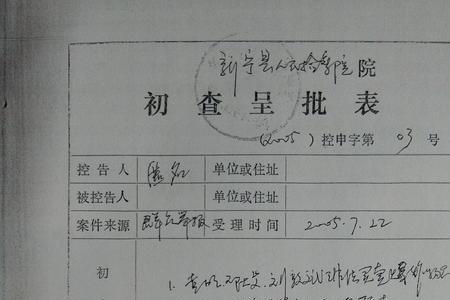 新宁县人民检察院院
初查呈批表
(2005)控申字第03号
控告人 匿名 单位或住址
被控告人 单位或住址
案件来源 群众举报 受理时间 2005.7.22
初
1.查明